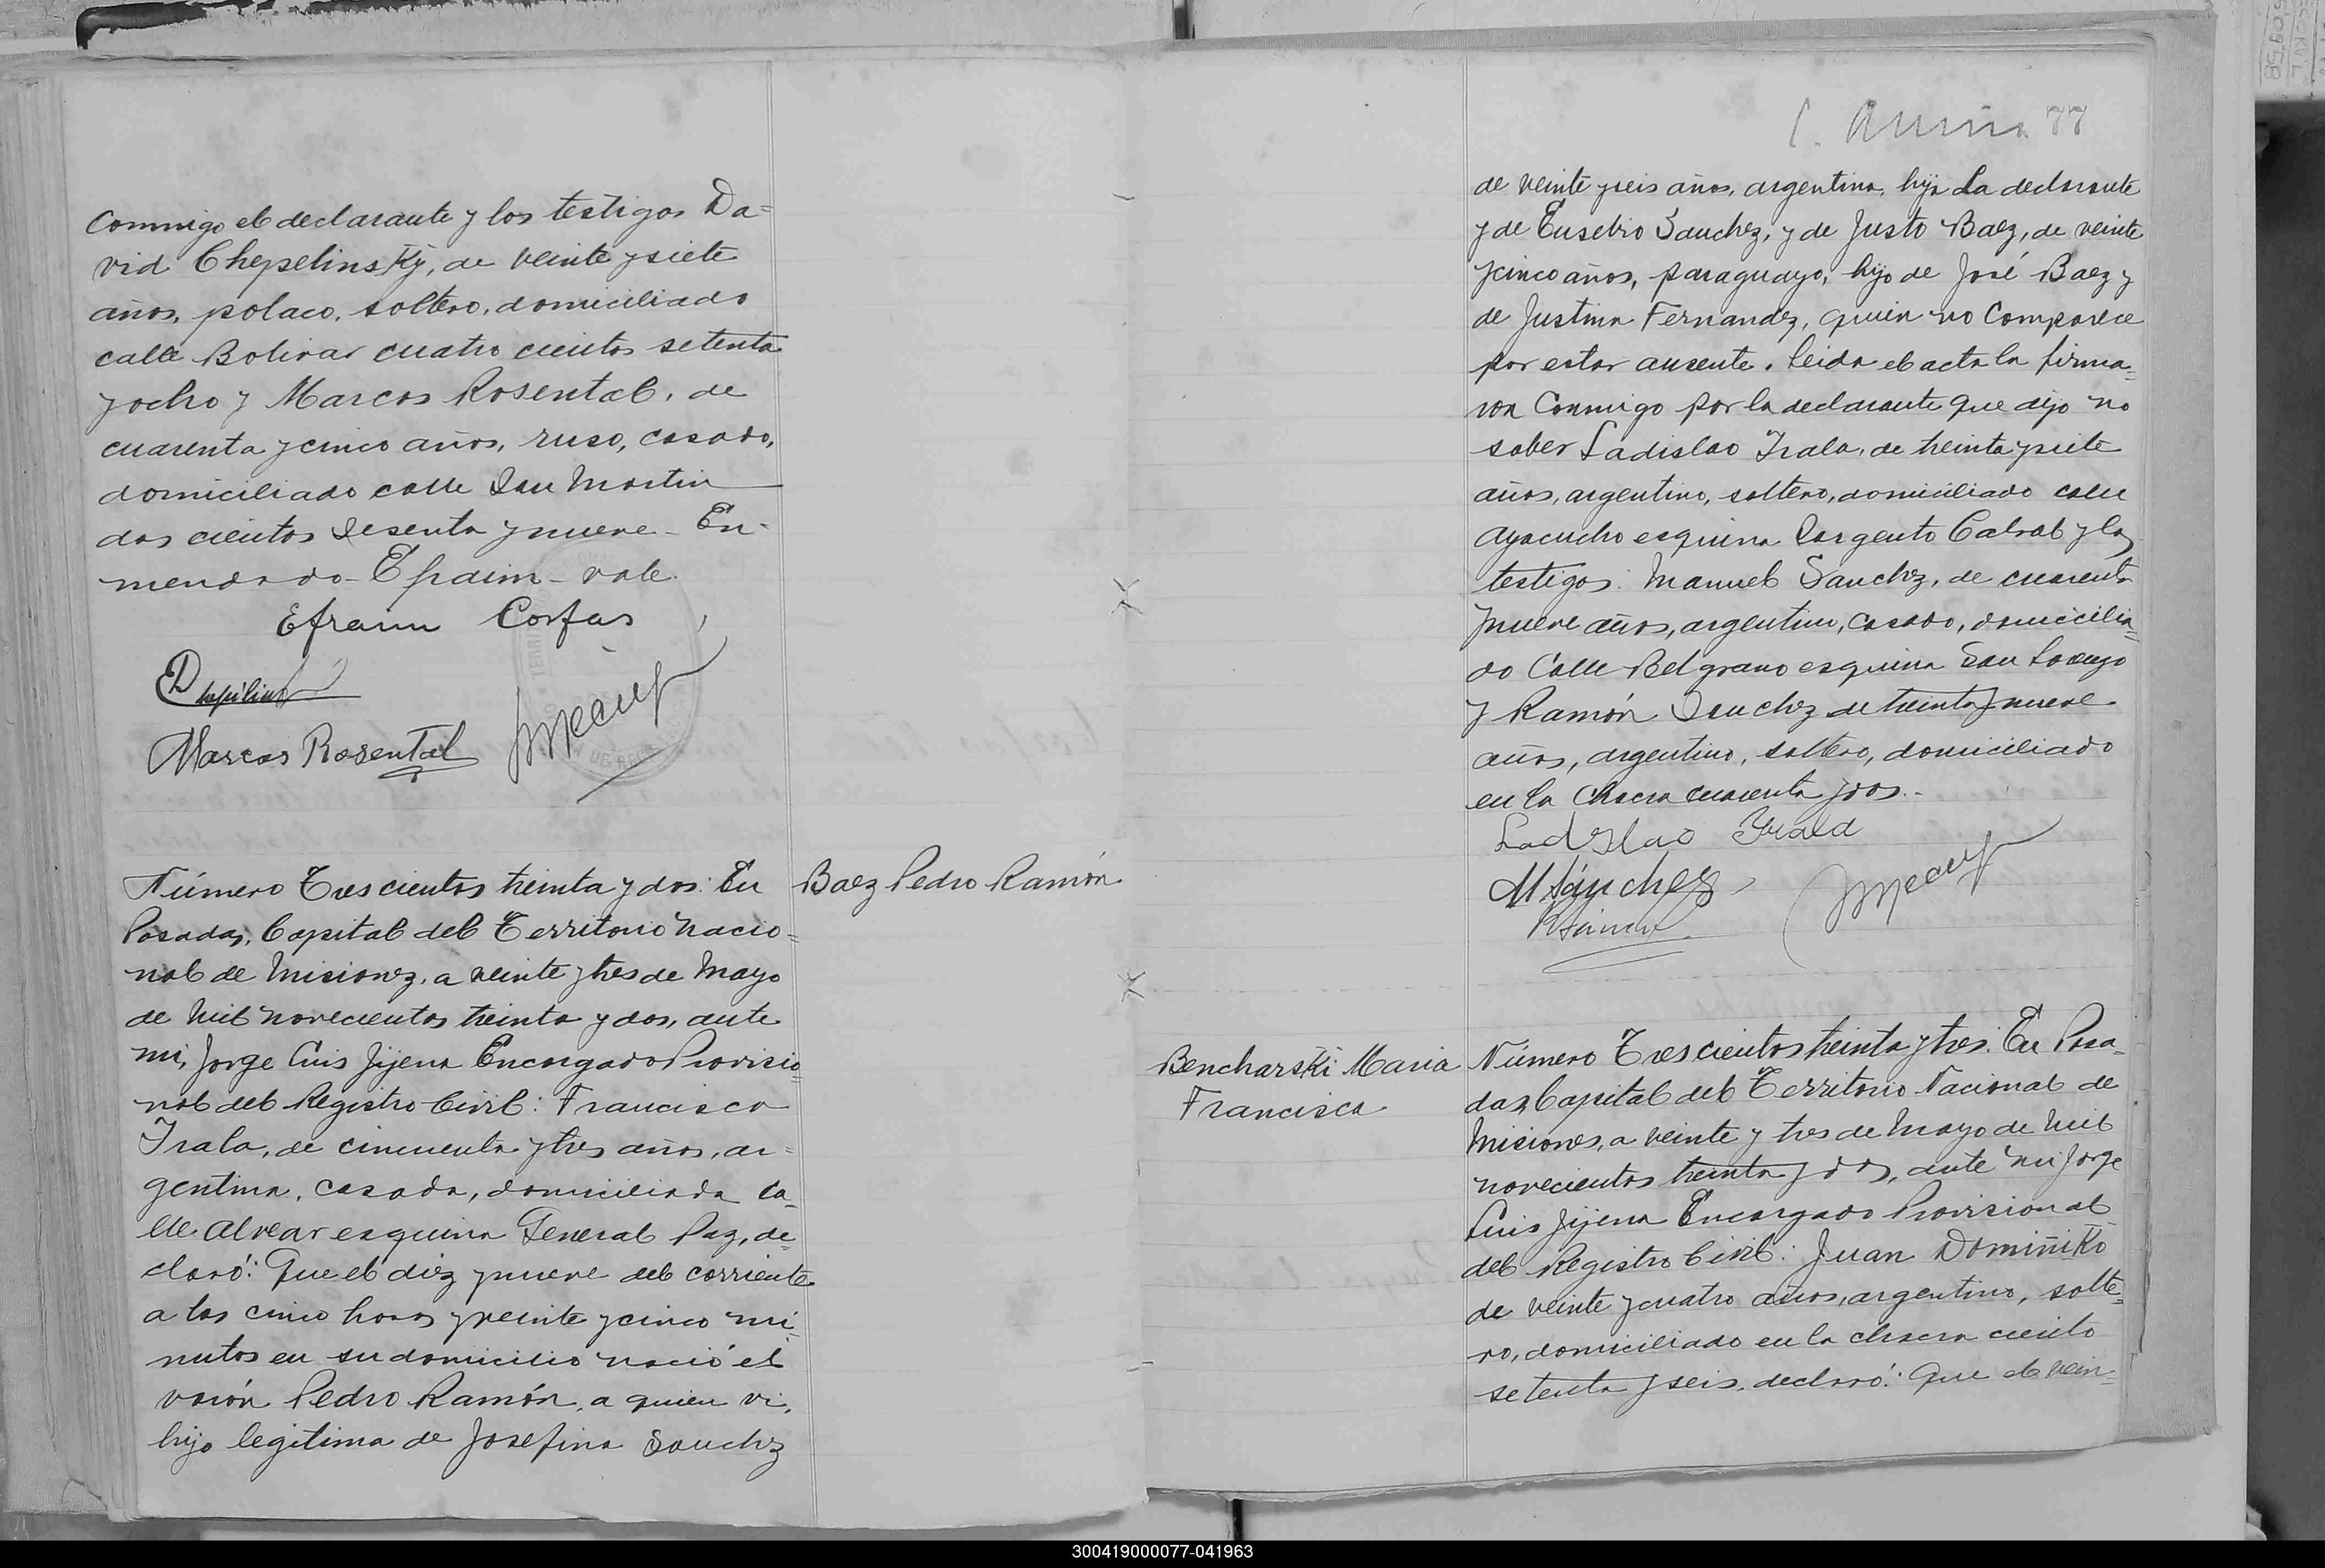 conmigo el declarante y los testigos Da=
vid Chepelinsky, de veinte y siete
años, polaco, soltero, domiciliado
calle Bolivar cuatro cientos setenta
y ocho y Marcos Rosental, de
cuarenta y cinco años, ruso, casado,
domiciliado calle San Martin
dos cientos sesenta y nueve - En-
mendado - Efraim - vale.
Efraim Corfas
Marcos Rosental
Número Trescientos treinta y dos: En
Posadas, Capital del Territorio Nacio=
nal de Misiones, a veinte y tres de Mayo
de mil novecientos treinta y dos, ante
mi, Jorge Luis Jijena Encargado Provisio=
nal del Registro Civil: Francisca
Irala, de cincuenta y tres años, ar=
gentina, casada, domiciliada ca=
lle Alvear esquina General Paz, de=
claró: Que el diez y nueve del corriente
a las cinco horas y veinte y cinco mi=
nutos en su domicilio nació el
varón Pedro Ramón, a quien vi,
hijo legitima de Josefina Sanchez
Baez Pedro Ramón
77
de veinte y seis años, argentina, hija La declarante
y de Eusebio Sanchez, y de Justo Baez, de veinte
y cinco años, paraguayo, hijo de José Baez y
de Justina Fernandez, quien no comparece
por estar ausente. Leida el acta la firma=
ron conmigo por la declarante que dijo no
saber Ladislao Irala, de treinta y siete
años, argentino, soltero, domiciliado calle
Ayacucho esquina Sargento Cabral y los
testigos: Manuel Sanchez, de cuarenta
y nueve años, argentino, casado, domicilia=
do Calle Belgrano esquina San Lorenzo
y Ramón Sanchez de treinta y nueve
años, argentino, soltero, domiciliado
en la chacra cuarenta y dos.-
Ladislao Irala
M Sánchez
R Sánchez
Bencharski Maria
Francisca
Número Trescientos treinta y tres: En Posa=
das, Capital del Territorio Nacional de
Misiones, a veinte y tres de Mayo de mil
novecientos treinta y dos, ante mi Jorge
Luis Jijena Encargado Provisional
del Registro Civil: Juan Dominiko
de veinte y cuatro años, argentino, solte=
ro, domiciliado en la chacra ciento
setenta y seis, declaró: Que el vein=
300419000077-041963